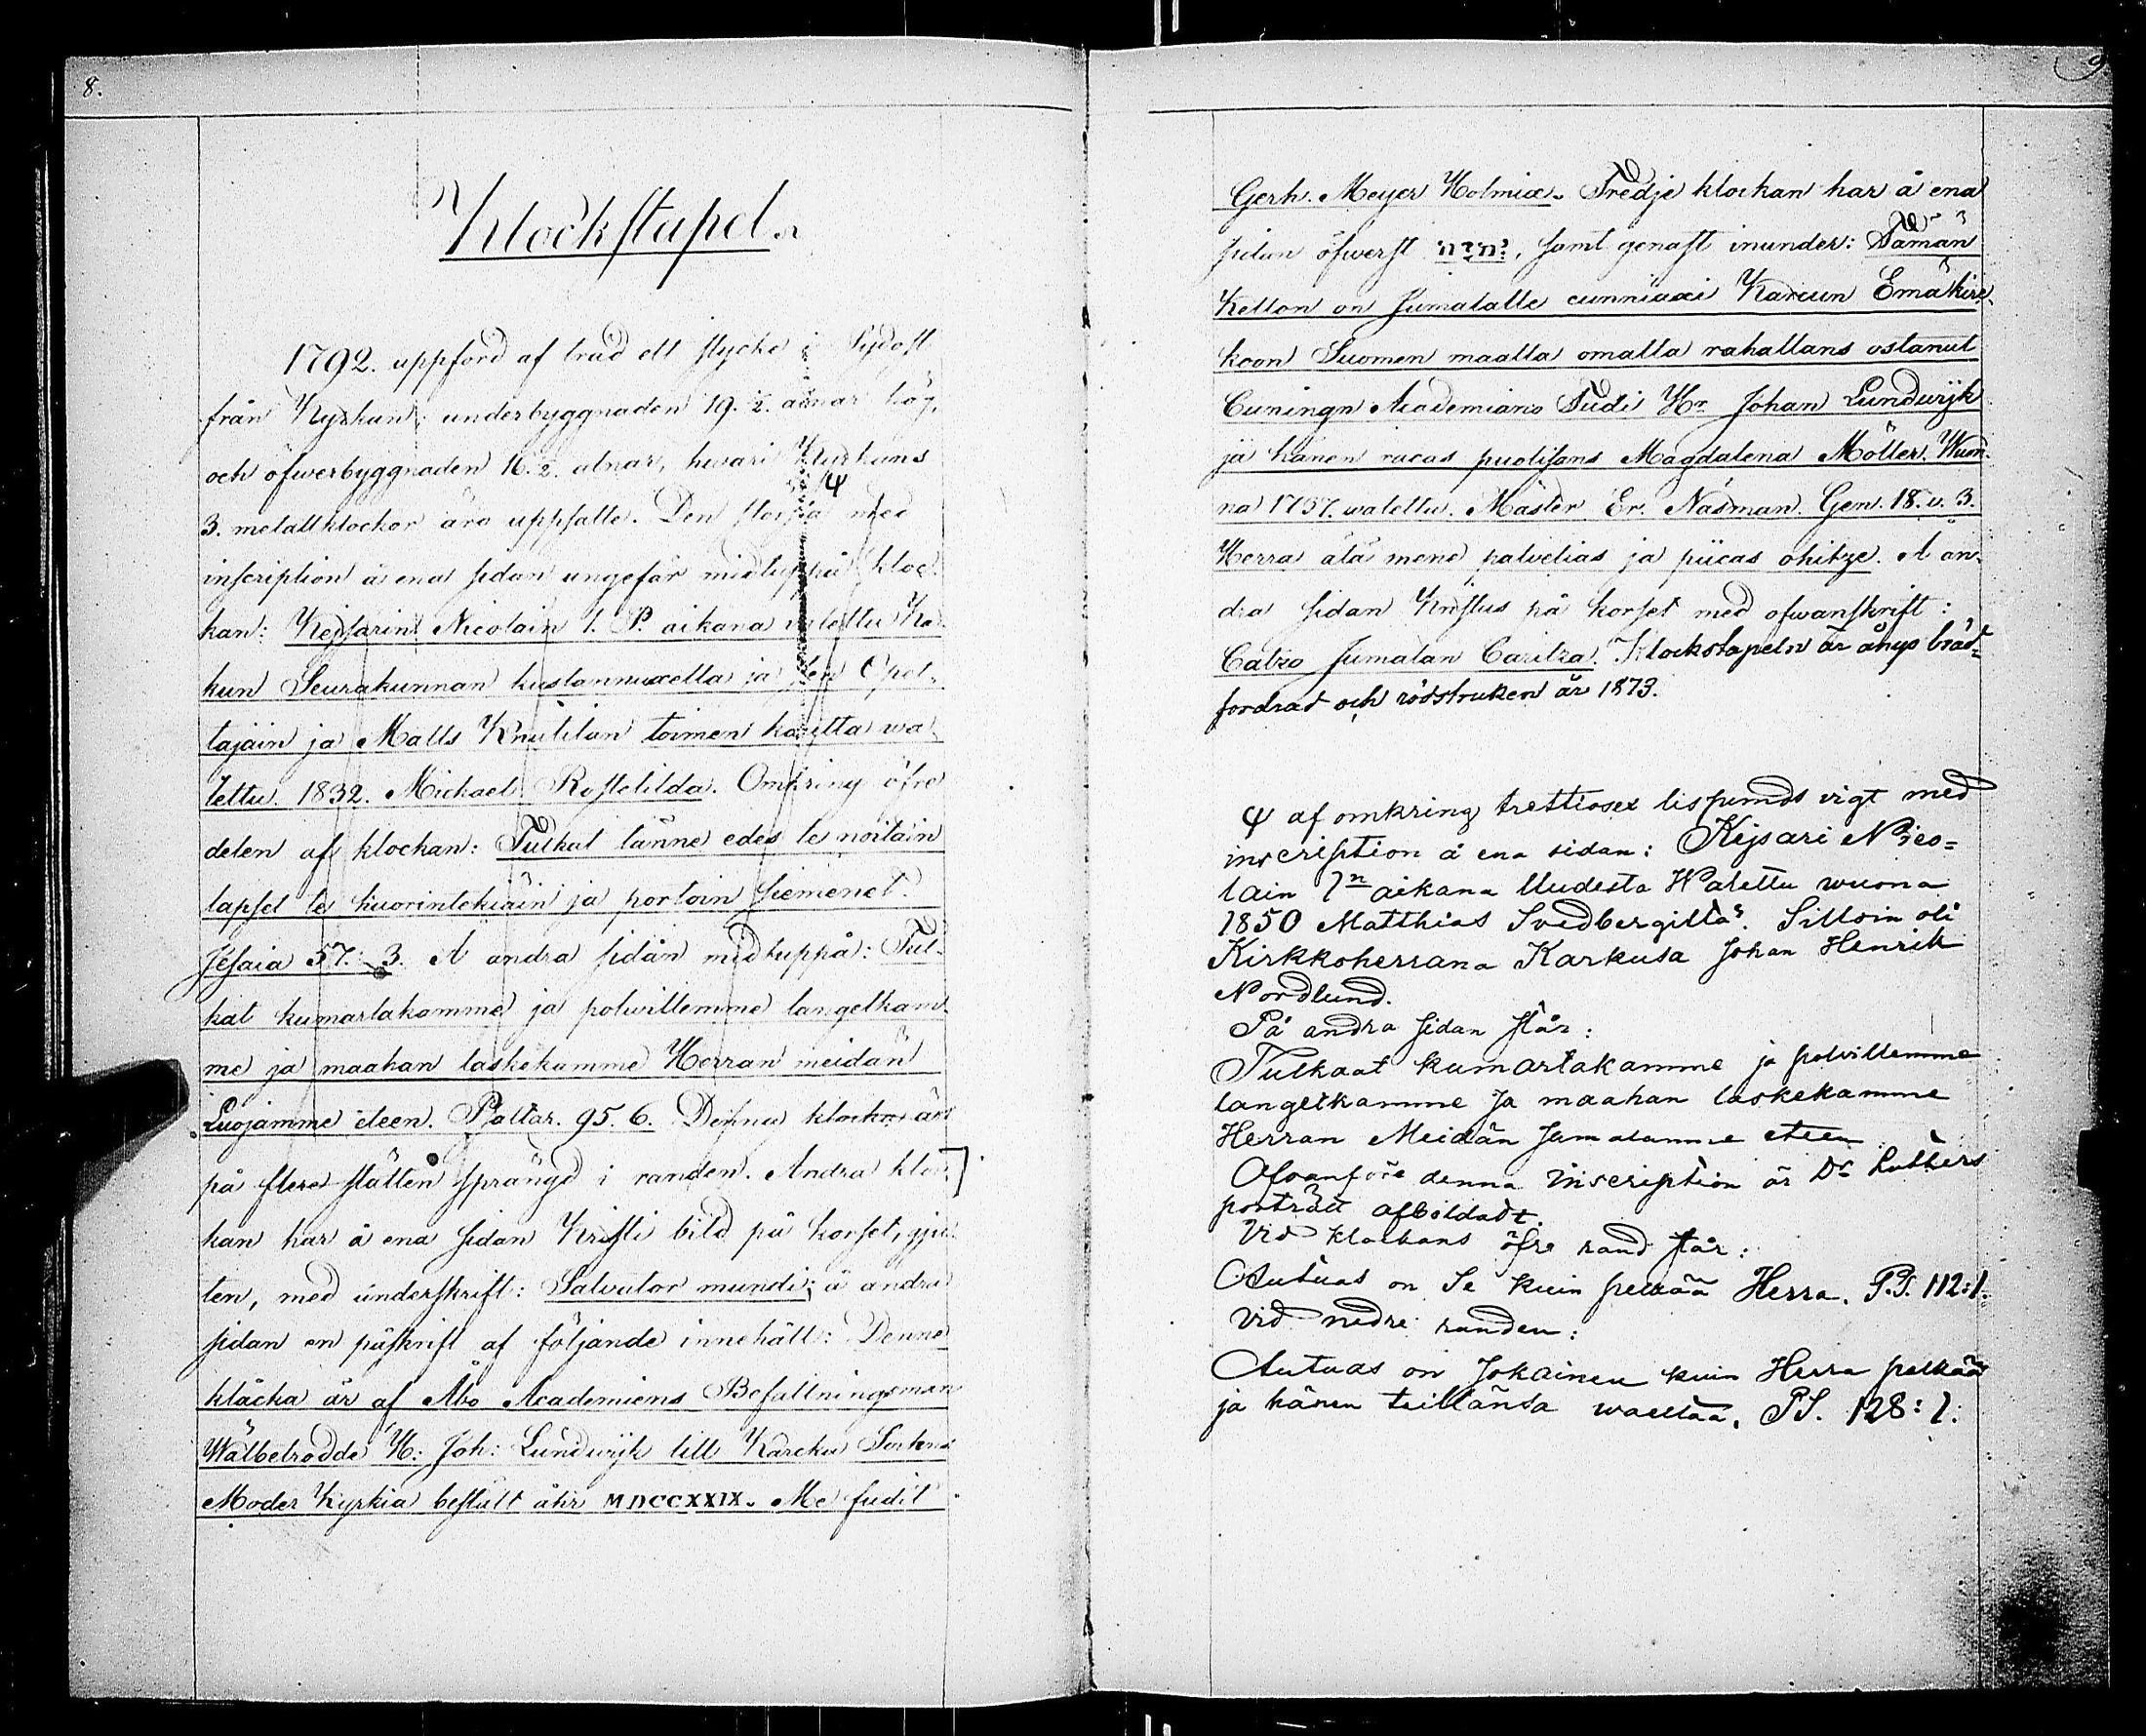 8.
Klockstapel.
1792. uppförd af träd ett stycke i Sydost
från Kyrkan; underbyggnaden 19.½. alnar hög,
och öfwerbyggnaden 16.½. alnar, hwari Kyrkans
3. metallklockor äro uppsatte. Den största med
Ψ
inscription å ena sidan ungefär midtuppå kloc-
kan: Kejsarin Nicolain 1. P. aikana walettu Kar-
kun Seurakunnan kustannuxella ja sen Opet-
tajain ja Matts Knutilan toimen kautta wa-
lettu. 1832. Michael Rostelilda. Omkring öfre
delen af klockan: Tulkat tänne edes te noitain
lapset te huorintekiäin ja portoin siemenet.
Jesaia 57: 3. Å andra sidan midtuppå: Tul-
kat kumartakamme ja polwillemme langetkam-
me ja maahan laskekamme Herran meidän
Luojamme eteen. Psaltar. 95. 6. Denna klocka är
på flere ställen sprängd i randen. Andra kloc-
kan har å ena sidan Kristi bild på korset, gju-
ten, med underskrift: Salvator mundi; å andra
sidan en påskrift af följande innehåll: Denne
kläcka är af Åbo Academiens Befallningsman
Wälbetrodde H: Joh: Lundwijk till Karcku Sockens
Moder Kyrkia bestält åhr MDCCXXIX. Me fudit
9
Gerh. Meyer Holmiæ. Tredje klockan har å ena
sidan öfwerst יהוה, samt genast inunder: Tämän
Kellon on Jumalalle cunniaxi Karcun Emäkirc-
koon Suomen maalla omalla rahallans ostanut
Cuningn Academians Fudi Hr Johan Lundwijk
ja hänen racas puolisans Magdalena Möller. Wuon-
na 1757. walettu. Mäster Er. Näsman. Gen. 18. v. 3.
Herra älä mene palvelias ja piicas ohitze. Å an-
dra sidan Kristus på korset med ofwanskrift:
Catzo Jumalan Caritza. Klockstapeln är ånyo bräd-
fordrad och rödstruken år 1873.
Ψ af omkring trettiosex lispunds vigt med
inscription å ena sidan: Kejsari Nico=
lain 1n aikana Uudesta Walettu wuona
1850 Matthias Svedbergiltä. Silloin oli
Kirkkoherrana Karkusa Johan Henrik
Nordlund.
På andra sidan står:
Tulkaat kumartakamme ja polvillemme
langetkamme Ja maahan laskekamme
Herran Meidän Jumalamme eteen
Ofvanföre denna inscription är Dr Luthers
porträtt afbildadt.
Vid klockans öfre rand står:
Autuas on Se kuin pelkää Herra. P.S. 112:1.
Vid nedre randen:
Autuas on Jokainen kuin Herra pelkää
ja hänen teillänsä waeltaa. PS. 128: 1.